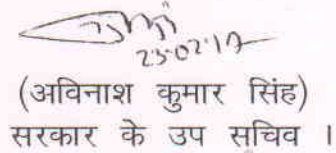 23-02-17
(अविनाश कुमार सिंह)
सरकार के उप सचिव ।